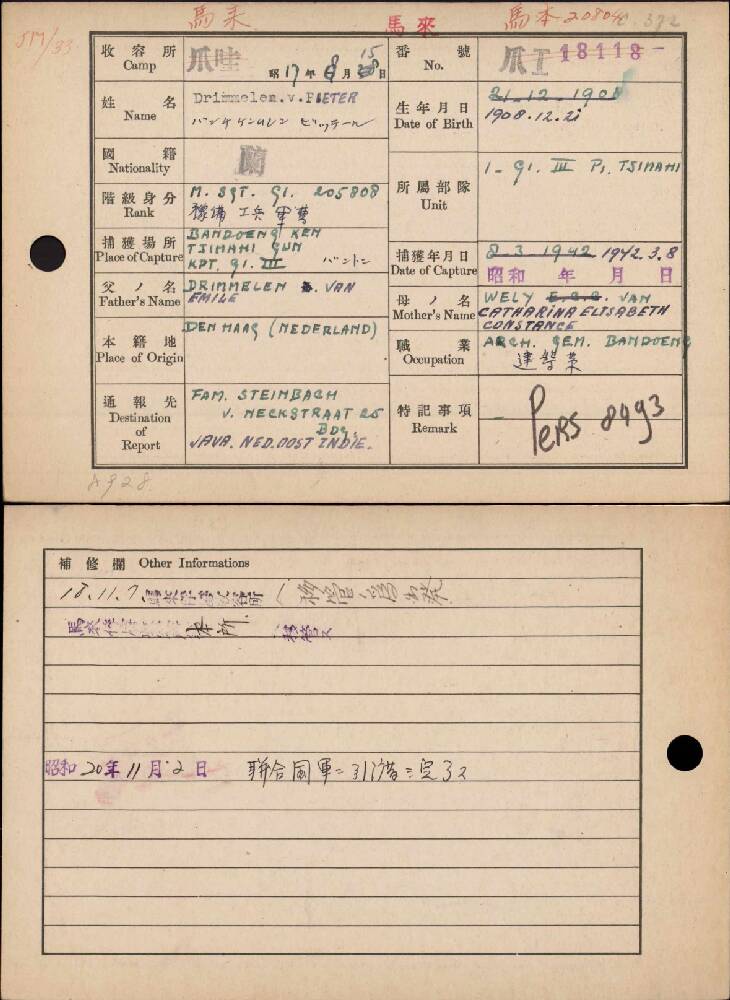 馬来
馬來
馬本20804
372
5M/33
收容所
Camp
爪哇
昭17年8月15日
番號
No.
爪I 18118
姓名
Name
Drimmelem.v.PIETER
生年月日
Date of Birth
21-12-1908
1908.12.21
國籍
Nationality
蘭
階級身分
Rank
M. SGT. GI. 205808
豫備工兵軍曹
所屬部隊
Unit
1- GI. III Pi. TSIMAHI
捕獲場所
Place of Capture
BANDOENG KEN
TSIMAHI GUN
KPT. GI. III
バンドン
捕獲年月日
Date of Capture
8.3.1942 1942.3.8
昭和 年 月 日
父ノ名
Father's Name
DRIMMELEN VAN
EMILE
母ノ名
Mother's Name
WELY E.C.C. VAN
CATHARINA ELISABETH
CONSTANCE
本籍地
Place of Origin
DEN HAAG (NEDERLAND)
職業
Occupation
ARCH. GEM. BANDOENG
通報先
Destination
of
Report
FAM. STEINBACH
V. HECKSTRAAT 25
BDG.
JAVA. NED. OOST INDIE.
特記事項
Remark
PERS 8493
8928
補修欄 Other Informations
18.11.7.
昭和20年11月2日 聯合国軍ニ引渡シ完了ス